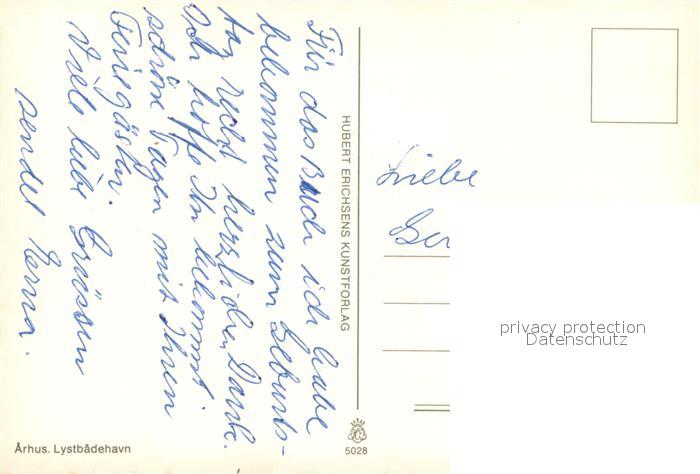 Für das Buch ich habe
bekommen zum Geburts-
tag recht herzlichen Dank.
Ich hoffe Ihr bekommt
schöne Tagen mit Ihren
Feriegäste.
Viele liebe Grüssen
sendet Herma.
HUBERT ERICHSENS KUNSTFORLAG
Liebe
Ger
privacy protection
Datenschutz
Århus. Lystbådehavn
5028